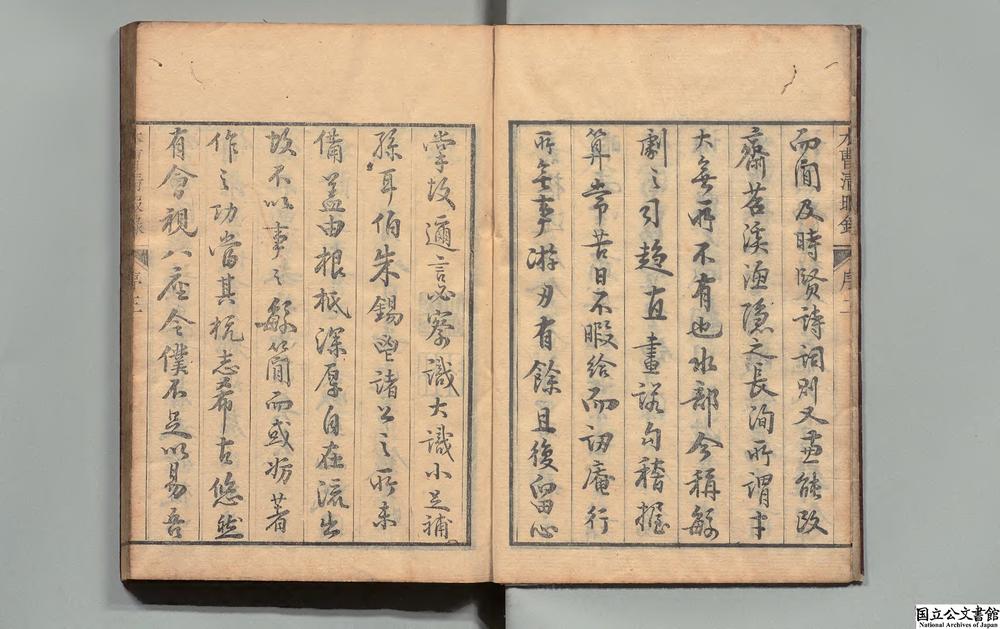 水曹清暇錄 序二
而間及時賢詩詞則又兼能改
齋苕溪漁隱之長洵所謂才
大無所不有也水部今稱繁
劇之司趨直畫諾句稽握
算常苦日不暇給而訒庵行
所無事游刃有餘且復留心
掌故邇言必察識大識小足補
孫耳伯朱錫鬯諸公之所未
備蓋由根柢深厚自在流出
故不以事之繁簡而或妨著
作之功當其抗志希古悠然
有會視八座令僕不足以易吾
水曹清暇錄 序
国立公文書館
National Archives of Japan